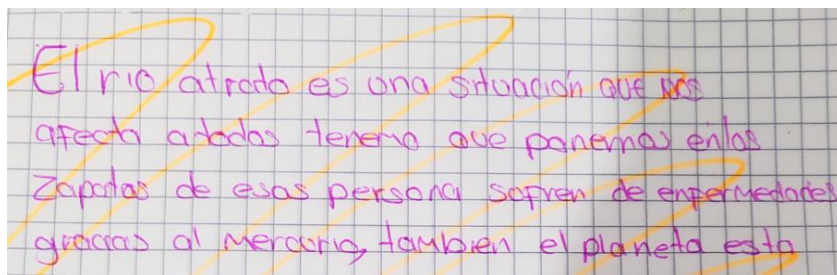 El rio atrato es una situación que nos
afecta a todos tenemo que ponernos en los
zapatos de esas persona sofren de enfermedades
gracias al mercurio, tambien el planeta esta